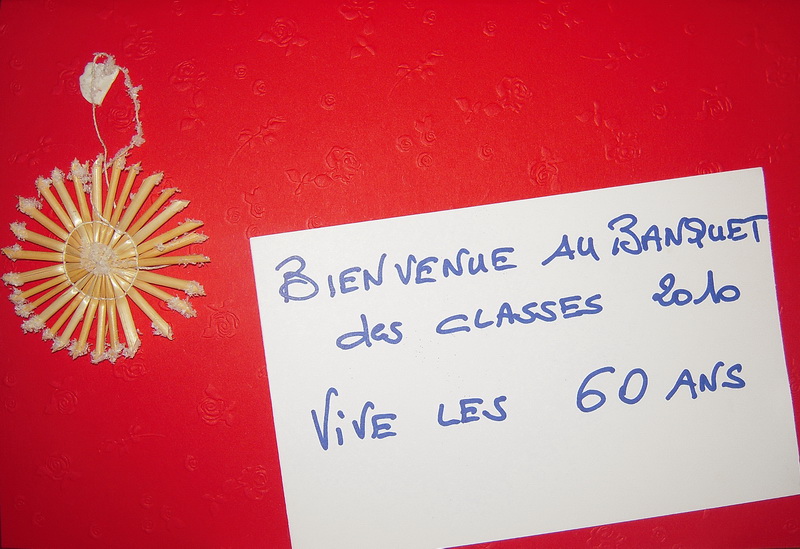 BIENVENUE AU BANQUET
des CLASSES 2010
VIVE LES 60 ANS